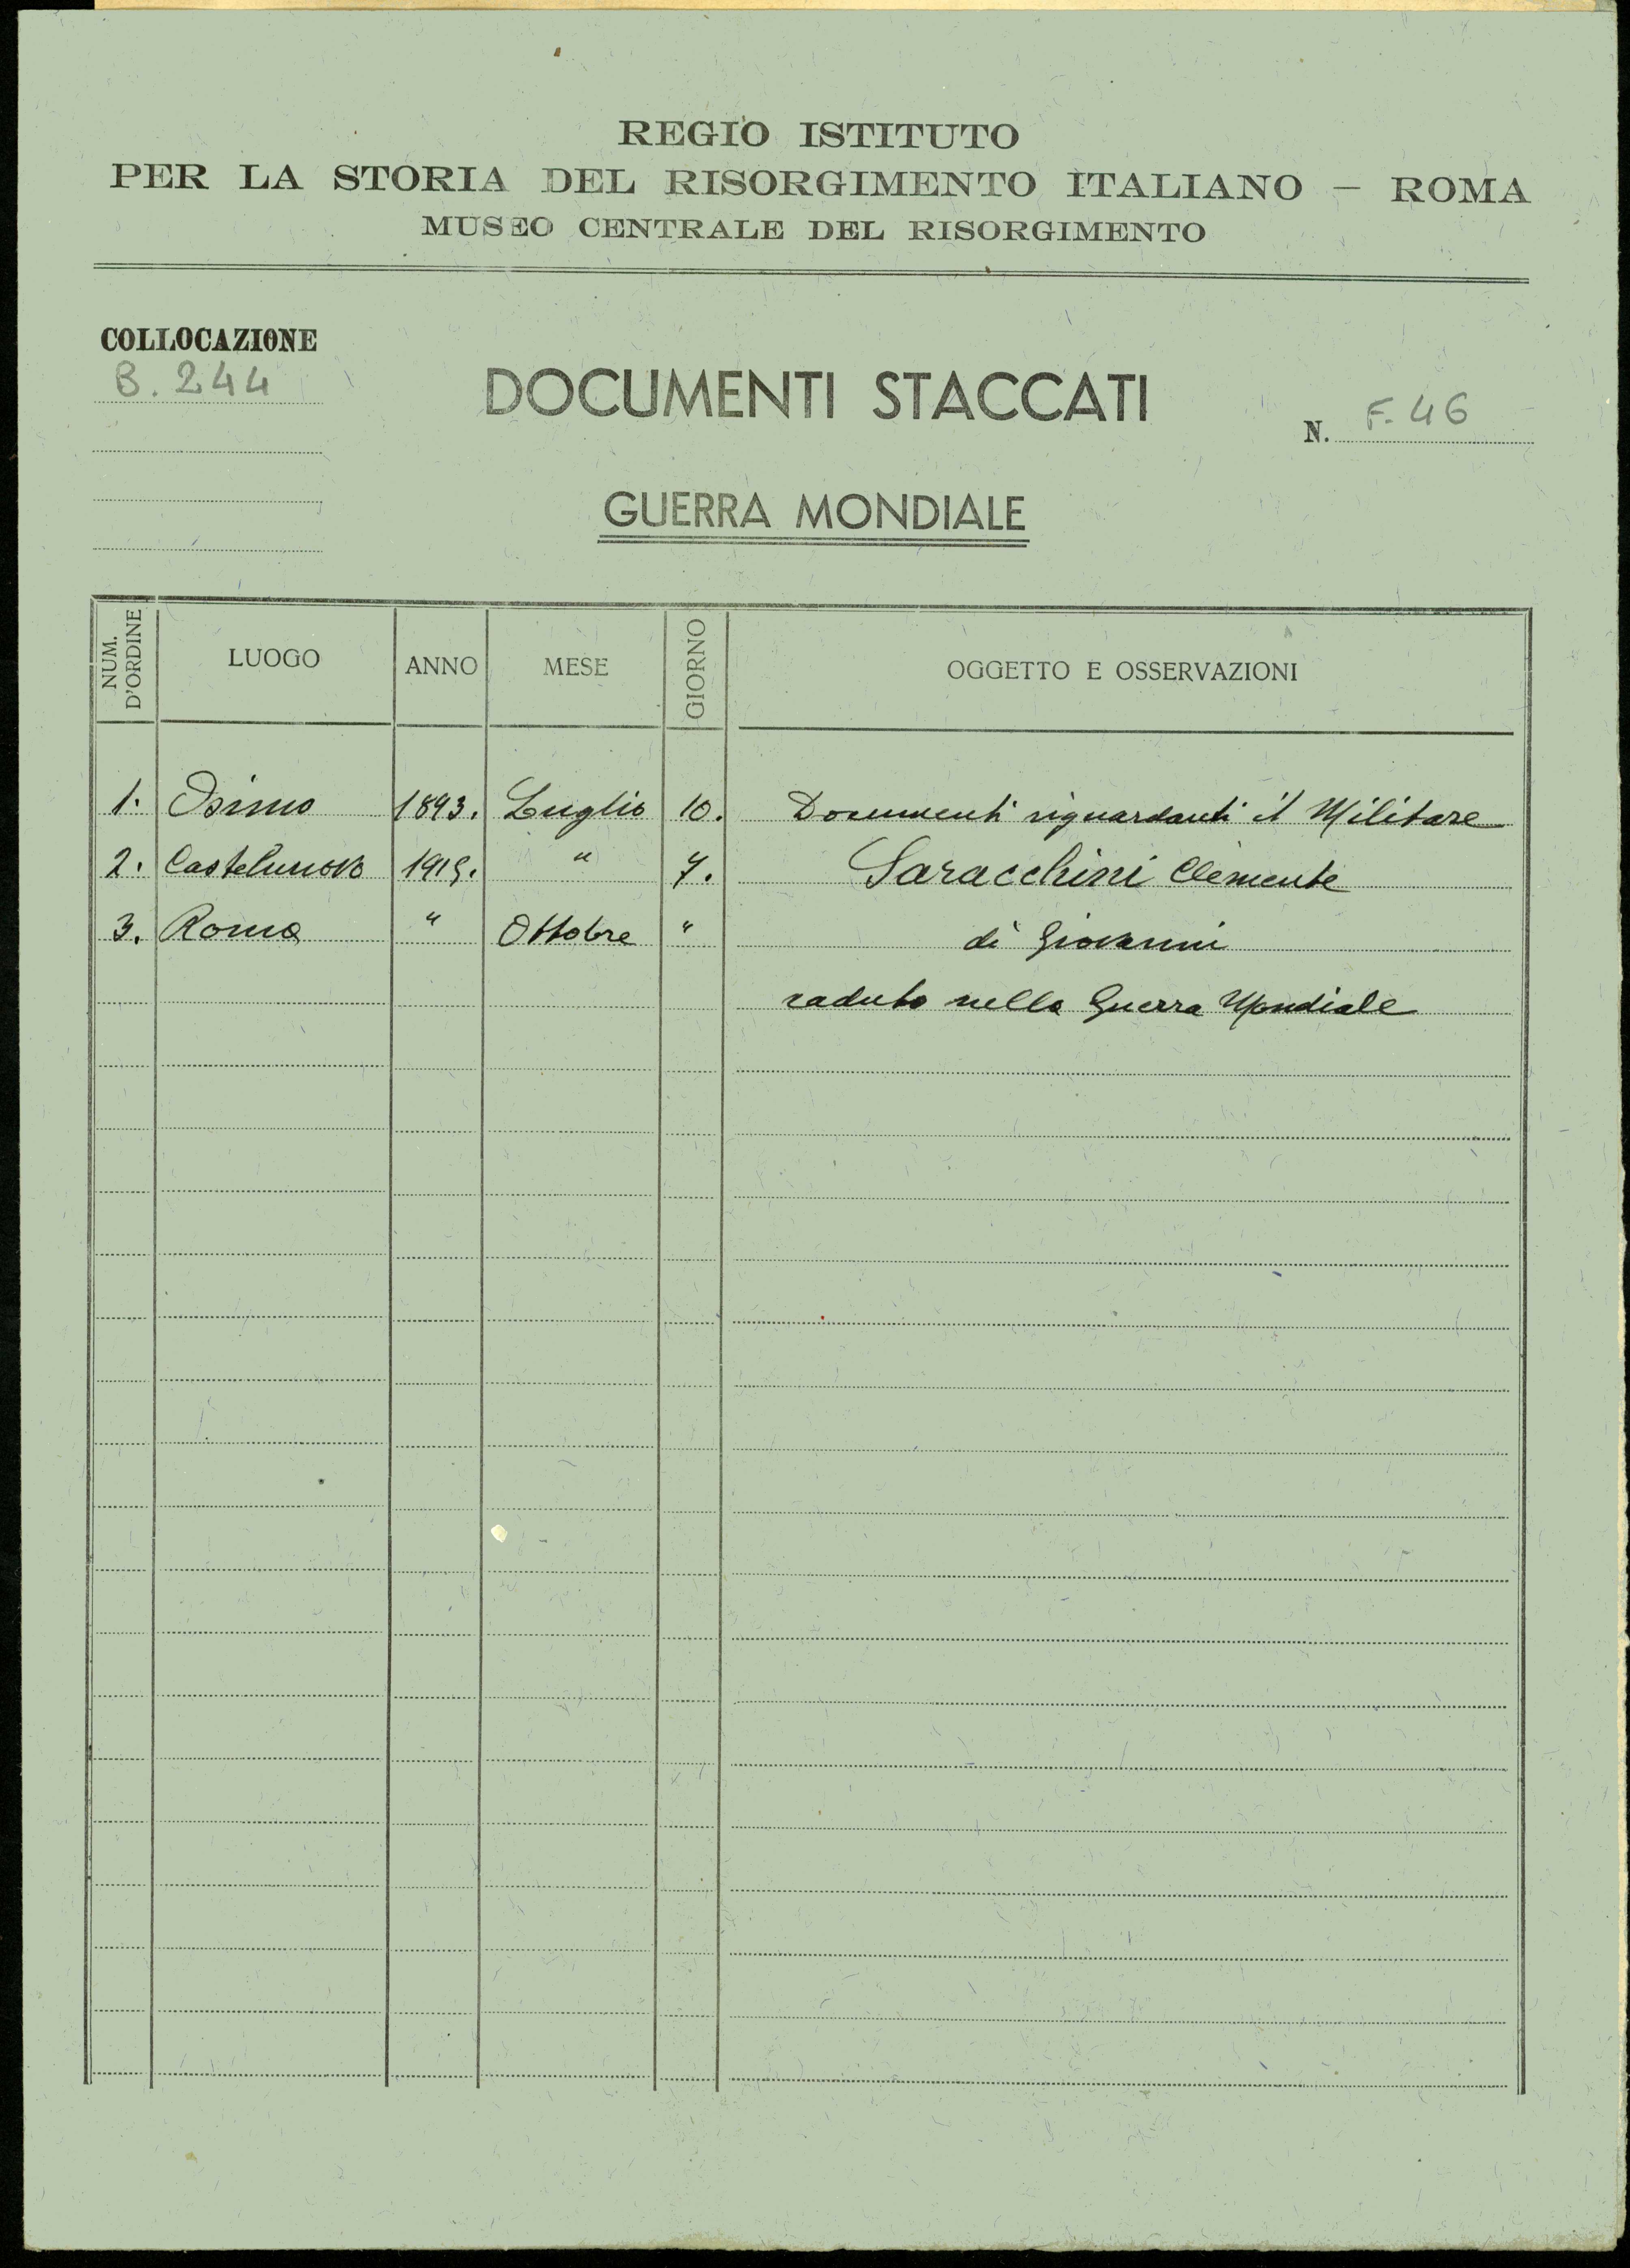 REGIO ISTITUTO
PER LA STORIA DEL RISORGIMENTO ITALIANO — ROMA
MUSEO CENTRALE DEL RISORGIMENTO
COLLOCAZIONE
B. 244
DOCUMENTI STACCATI
N. F. 46
GUERRA MONDIALE
NUM. D'ORDINE LUOGO ANNO MESE GIORNO OGGETTO E OSSERVAZIONI
1. Osimo 1893. Luglio 10. Documenti riguardanti il Militare
2. Castelnuovo 1915. " 7. Saracchini Clemente
3. Roma " Ottobre " di Giovanni
caduto nella Guerra Mondiale